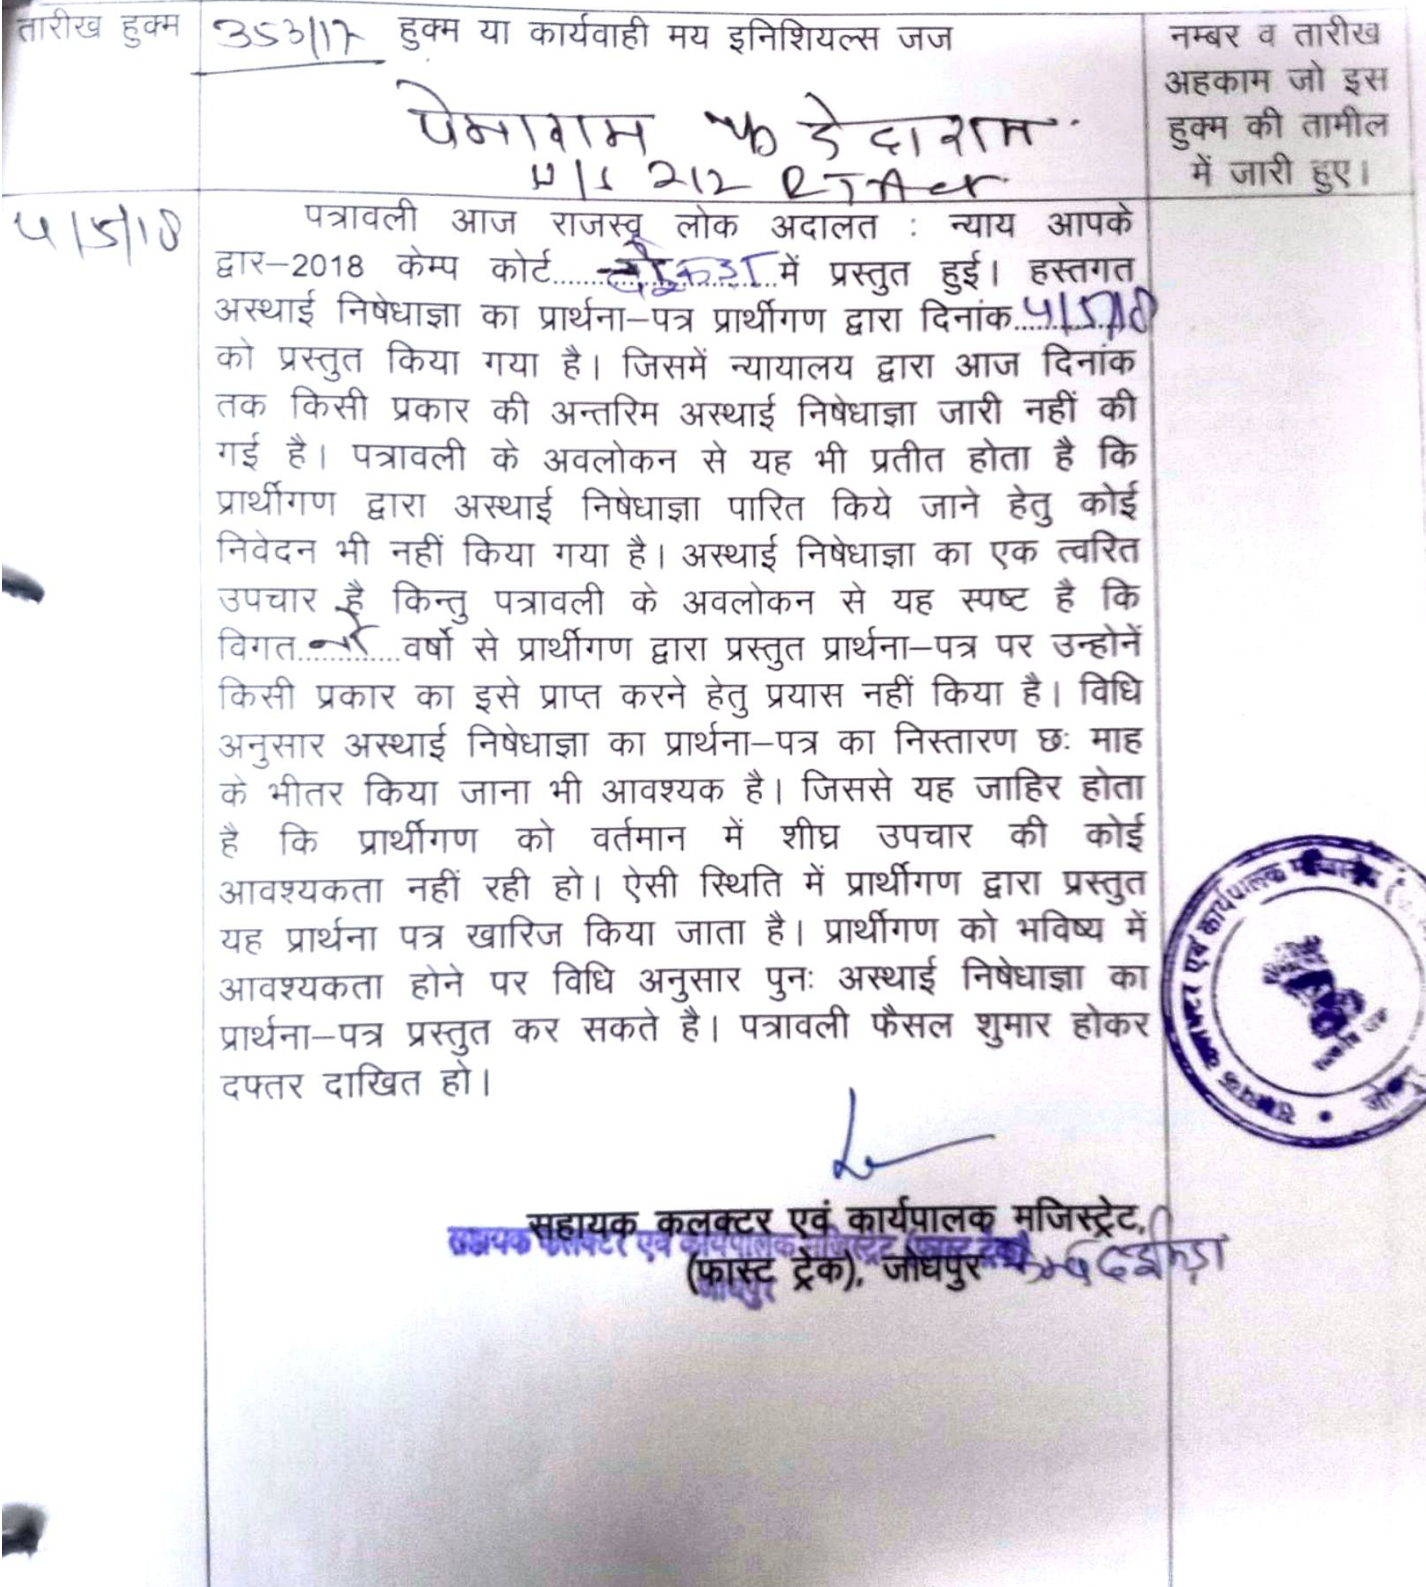 तारीख हुक्म
353/17 हुक्म या कार्यवाही मय इनिशियल्स जज
नम्बर व तारीख
अहकाम जो इस
हुक्म की तामील
में जारी हुए।
पेमाराम
U/S 212 RTAct
4/5/18
पत्रावली आज राजस्व लोक अदालत : न्याय आपके
द्वार–2018 केम्प कोर्ट.......................में प्रस्तुत हुई। हस्तगत
अस्थाई निषेधाज्ञा का प्रार्थना–पत्र प्रार्थीगण द्वारा दिनांक..4/5/18
को प्रस्तुत किया गया है। जिसमें न्यायालय द्वारा आज दिनांक
तक किसी प्रकार की अन्तरिम अस्थाई निषेधाज्ञा जारी नहीं की
गई है। पत्रावली के अवलोकन से यह भी प्रतीत होता है कि
प्रार्थीगण द्वारा अस्थाई निषेधाज्ञा पारित किये जाने हेतु कोई
निवेदन भी नहीं किया गया है। अस्थाई निषेधाज्ञा का एक त्वरित
उपचार है किन्तु पत्रावली के अवलोकन से यह स्पष्ट है कि
विगत...........वर्षो से प्रार्थीगण द्वारा प्रस्तुत प्रार्थना–पत्र पर उन्होनें
किसी प्रकार का इसे प्राप्त करने हेतु प्रयास नहीं किया है। विधि
अनुसार अस्थाई निषेधाज्ञा का प्रार्थना–पत्र का निस्तारण छः माह
के भीतर किया जाना भी आवश्यक है। जिससे यह जाहिर होता
है कि प्रार्थीगण को वर्तमान में शीघ्र उपचार की कोई
आवश्यकता नहीं रही हो। ऐसी स्थिति में प्रार्थीगण द्वारा प्रस्तुत
यह प्रार्थना पत्र खारिज किया जाता है। प्रार्थीगण को भविष्य में
आवश्यकता होने पर विधि अनुसार पुनः अस्थाई निषेधाज्ञा का
प्रार्थना–पत्र प्रस्तुत कर सकते है। पत्रावली फैसल शुमार होकर
दफ्तर दाखित हो।
सहायक कलक्टर एवं कार्यपालक मजिस्ट्रेट,
सहायक कलक्टर एवं कार्यपालक मजिस्ट्रेट (फास्ट ट्रेक)
(फास्ट ट्रेक), जोधपुर
जोधपुर